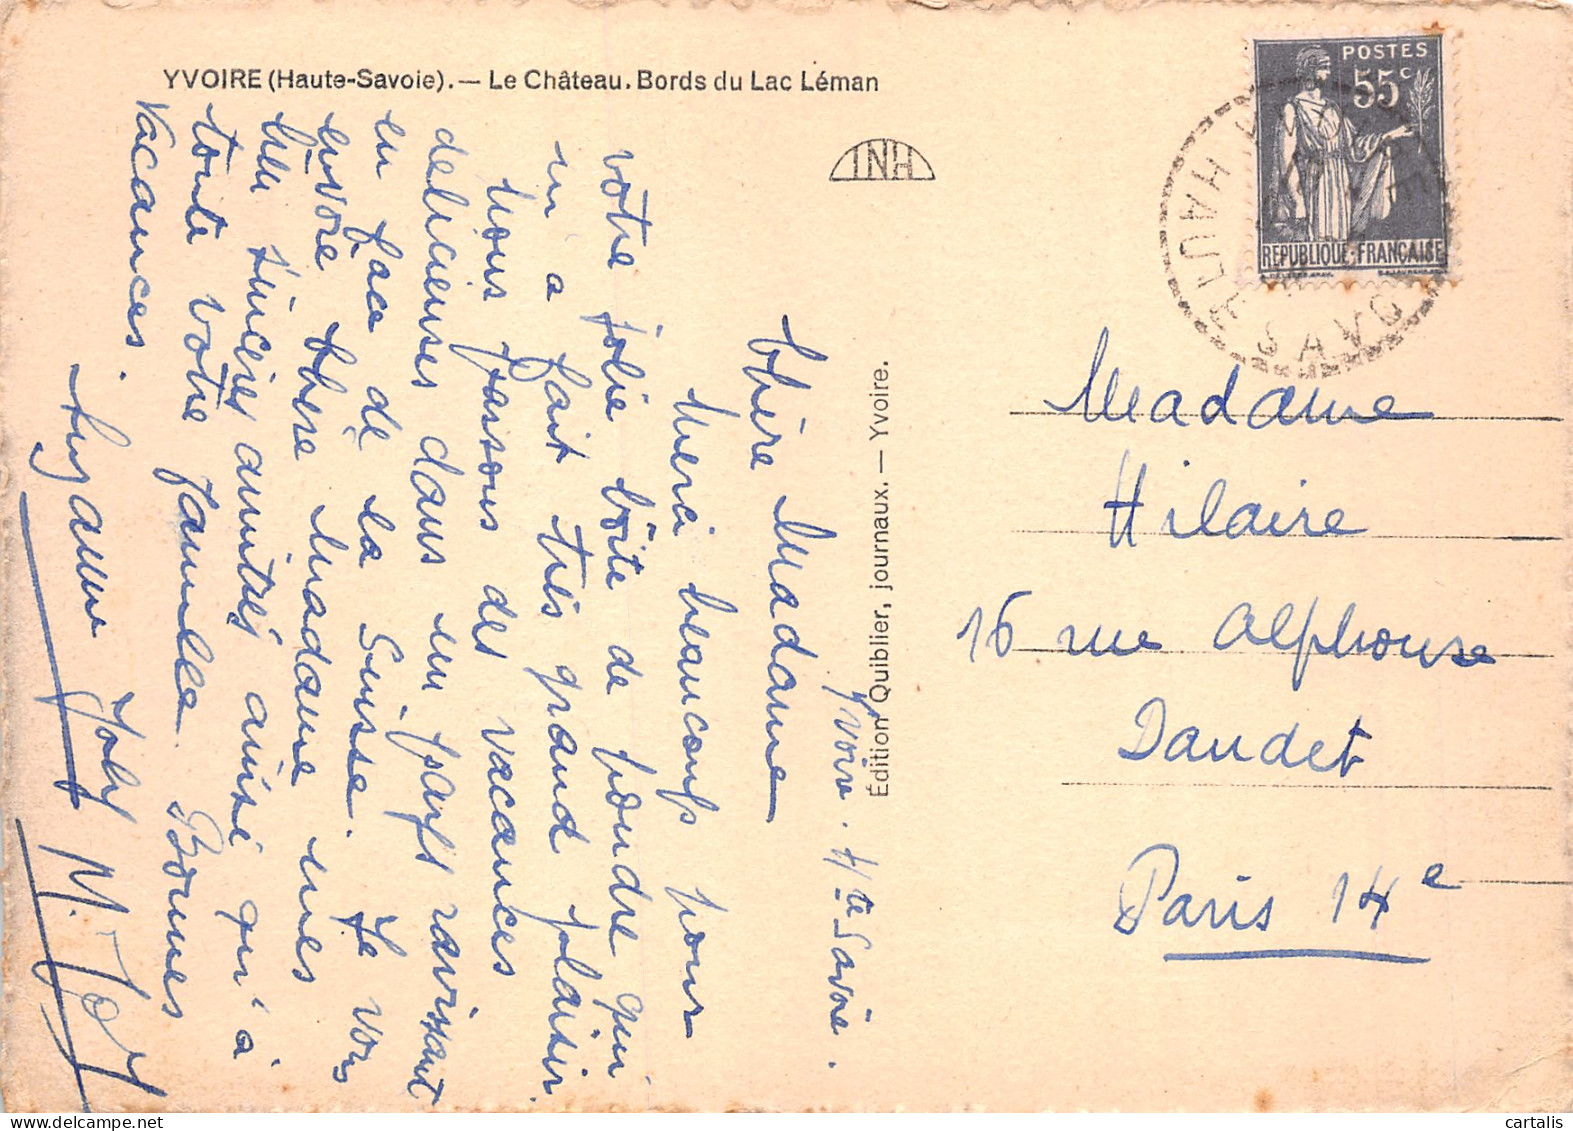 YVOIRE (Haute-Savoie). — Le Château. Bords du Lac Léman
INH
POSTES
55c
REPUBLIQUE-FRANÇAISE
HAUTE
SAVO
Édition Quiblier, journaux. — Yvoire.
Yvoire. Hte Savoie.
Chère Madame
Merci beaucoup pour
votre jolie boîte de poudre qui
m'a fait très grand plaisir.
Nous passons des vacances
délicieuses dans un pays ravissant
en face de la Suisse. Je vous
envoie chère Madame mes
sincères amitiés ainsi qu'à
toute votre famille. Bonnes
Vacances.
Suzanne Joly M. Joly
Madame
Hilaire
16 rue Alphonse
Daudet
Paris 14e
cartalis